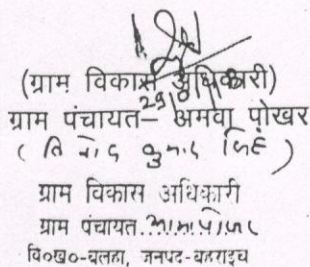 (ग्राम विकास अधिकारी)
ग्राम पंचायत– अमवा पोखर
( विनोद कुमार सिंह )
ग्राम विकास अधिकारी
ग्राम पंचायत
वि०ख०-बलहा, जनपद-बहराइच